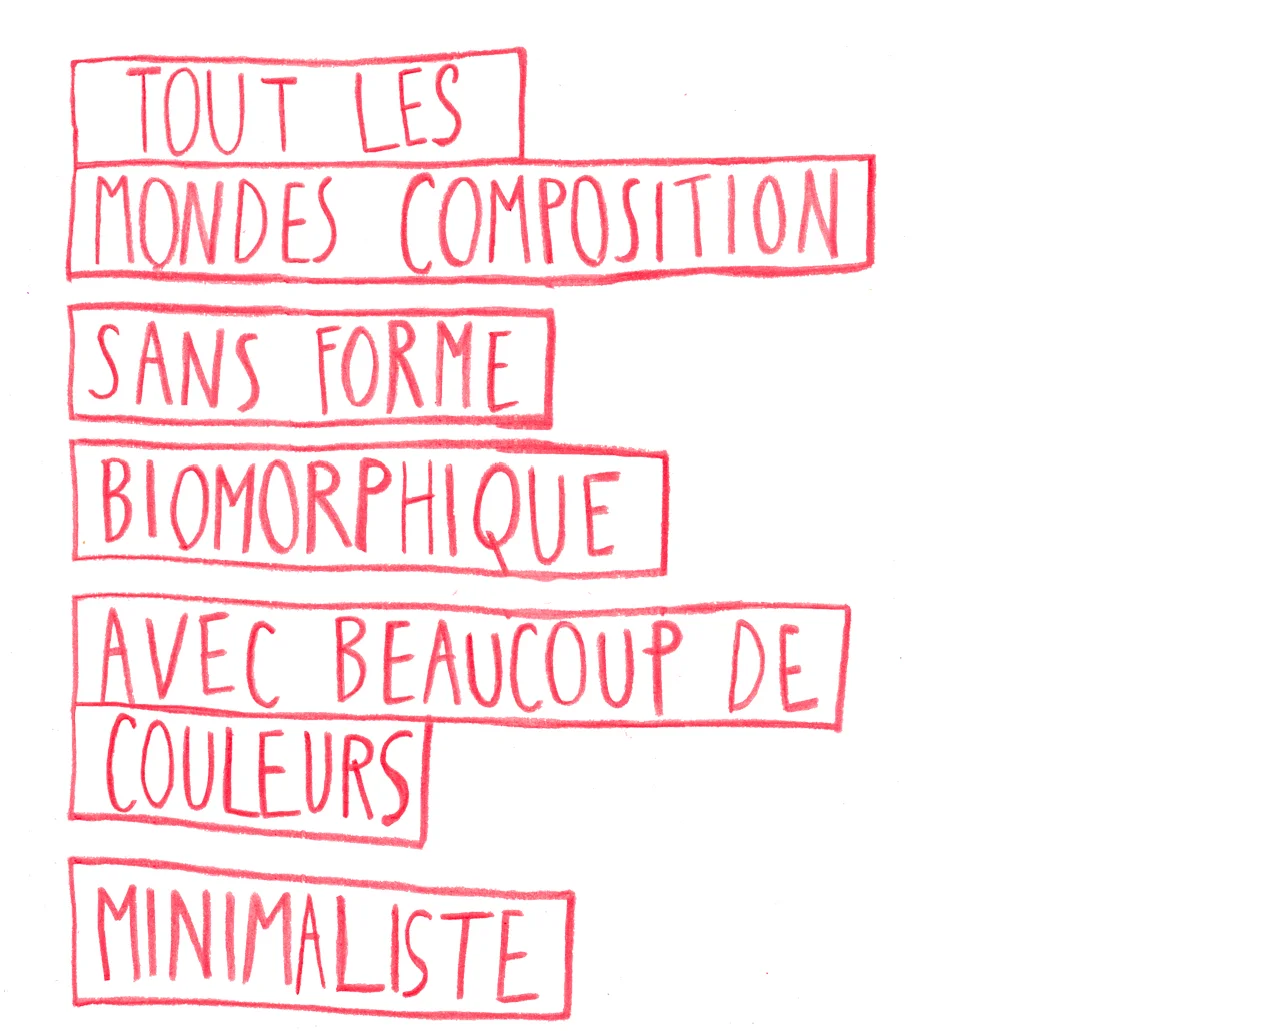 TOUT LES
MONDES COMPOSITION
SANS FORME
BIOMORPHIQUE
AVEC BEAUCOUP DE
COULEURS
MINIMALISTE